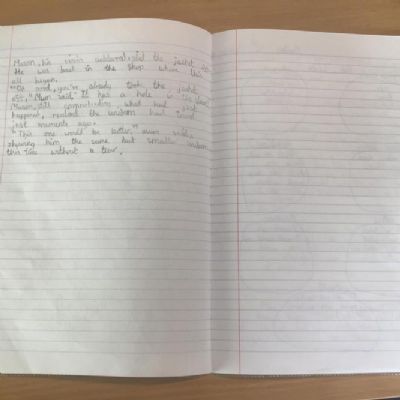 Mason, his vision, the jacket
He was back in the shop where this
all began.
"Oh good, you've already took the jacket
off," Mum said. "It has a hole in the
Mason, still comprehending what had just
happened, realised the had
just moments ago.
"This one would be better," mum said,
showing him the same but smaller
this time without a tear.